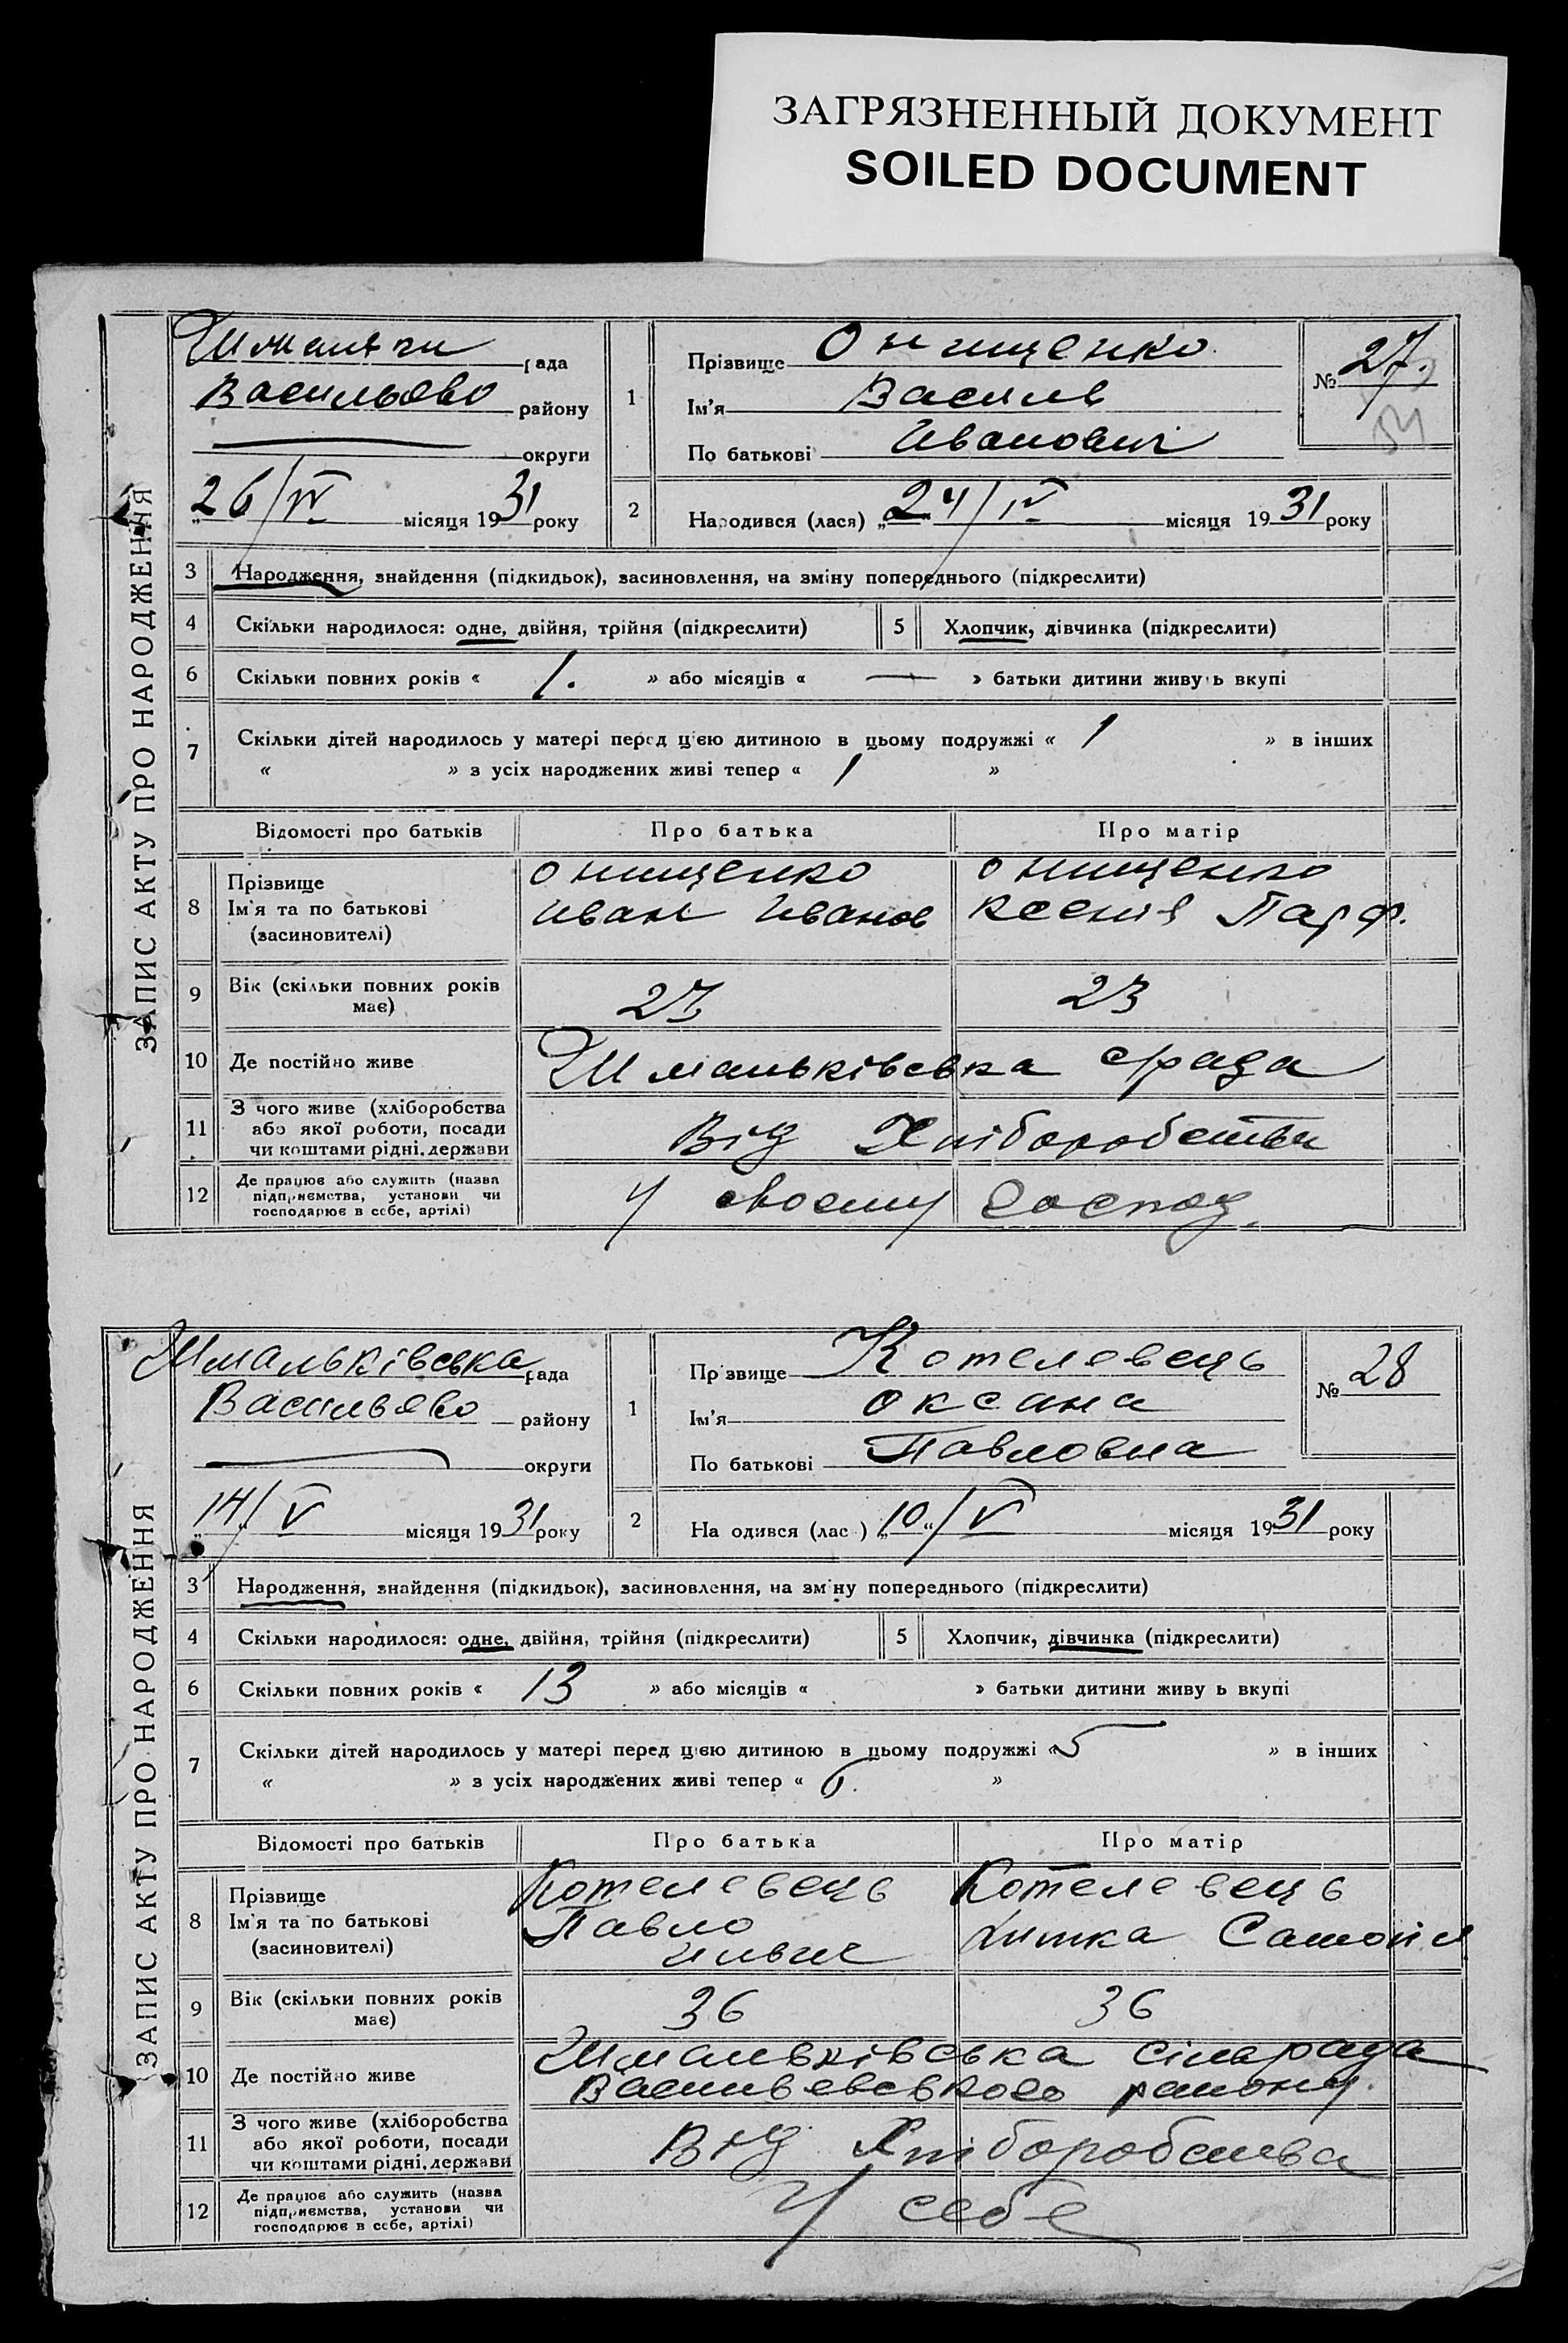 ЗАГРЯЗНЕННЫЙ ДОКУМЕНТ
SOILED DOCUMENT
ЗАПИС АКТУ ПРО НАРОДЖЕННЯ
рада
Васильово району
округи
26/IV місяця 1931 року
1
Прізвище Онищенко
Ім'я Василь
По батькові Иванович
№ 27.
2
Народився (лася) „24/IV місяця 1931 року
3 Народження, знайдення (підкидьок), засиновлення, на зміну попереднього (підкреслити)
4 Скільки народилося: одне, двійня, трійня (підкреслити) 5 Хлопчик, дівчинка (підкреслити)
6 Скільки повних років « 1. » або місяців « — » батьки дитини живуть вкупі
7 Скільки дітей народилось у матері перед цією дитиною в цьому подружжі « 1 » в інших
« » з усіх народжених живі тепер « 1 »
Відомості про батьків Про батька Про матір
8 Прізвище
Ім'я та по батькові
(засиновителі)
Онищенко
Иван Иванов
Онищенко
Ксенія Парф.
9 Вік (скільки повних років
має)
27
23
10 Де постійно живе Шманьківська с/рада
11 З чого живе (хліборобства
або якої роботи, посади
чи коштами рідні, держави
Від Хліборобства
12 Де працює або служить (назва
підприємства, установи чи
господарює в себе, артілі)
У своєму господ.
ЗАПИС АКТУ ПРО НАРОДЖЕННЯ
Шманьківська рада
Васильево району
округи
„14/V місяця 1931 року
1
Прізвище Котелевець
Ім'я Оксана
По батькові Павловна
№ 28
2
На одився (лас ) „10“/V місяця 1931 року
3 Народження, знайдення (підкидьок), засиновлення, на зміну попереднього (підкреслити)
4 Скільки народилося: одне, двійня, трійня (підкреслити) 5 Хлопчик, дівчинка (підкреслити)
6 Скільки повних років « 13 » або місяців « » батьки дитини живу ь вкупі
7 Скільки дітей народилось у матері перед цією дитиною в цьому подружжі « 5 » в інших
« » з усіх народжених живі тепер « 6. »
Відомості про батьків Про батька Про матір
8 Прізвище
Ім'я та по батькові
(засиновителі)
Котелевець
Павло
Котелевець
Самойл
9 Вік (скільки повних років
має)
36
36
10 Де постійно живе
Шманьківська сільрада
Васильевського району.
11 З чого живе (хліборобства
або якої роботи, посади
чи коштами рідні, держави
Від Хліборобства
12 Де працює або служить (назва
підприємства, установи чи
господарює в себе, артілі)
У себе